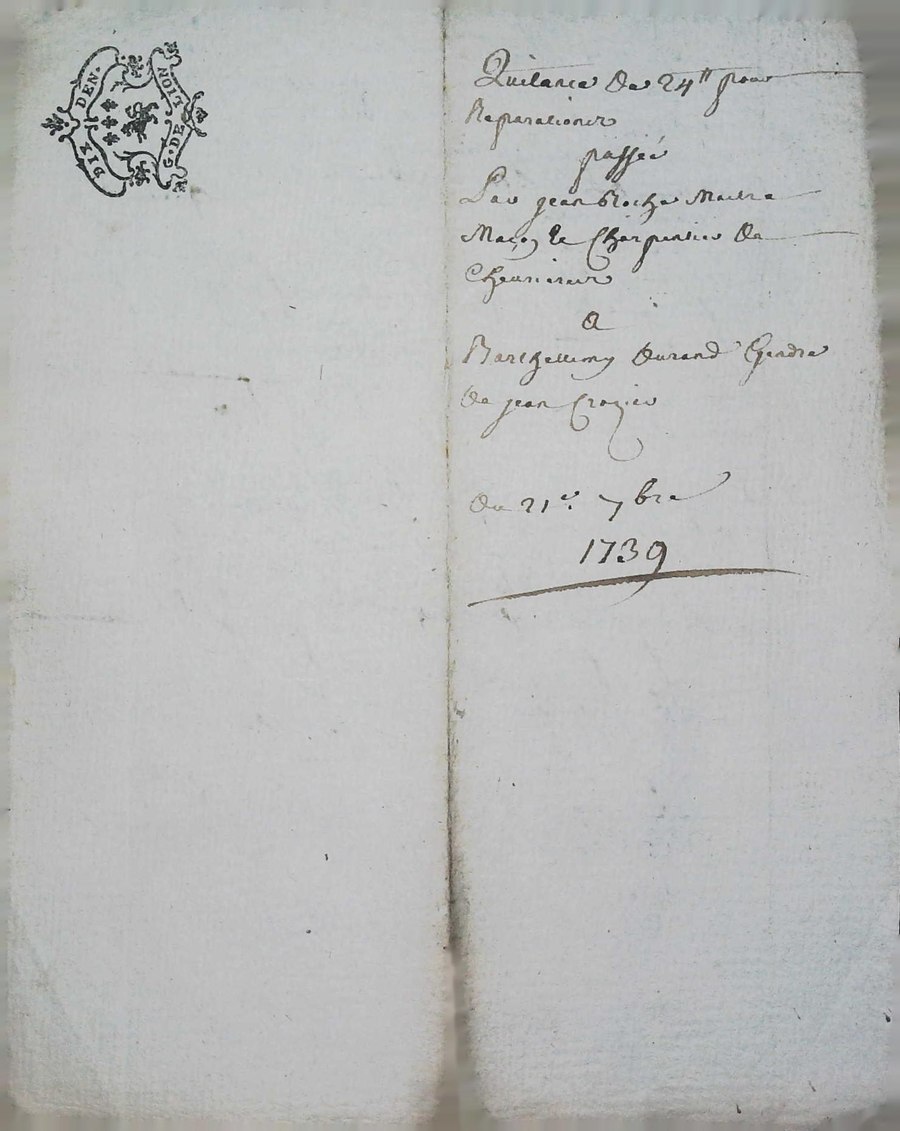 DIX DEN.
G. DE LION
Quitance De 24ᵗᵗ pour
Reparations
passée
Par jean Roche Maitre
Maçon Et Charpentier De
Chevrieres
A
Barthellemy Durand Gendre
De jean Crozier
Du 21ᵉ. 7bre
1739